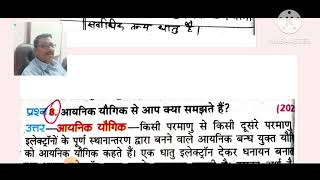 सर्वाधिक तन्य धातु है।
प्रश्न 8. आयनिक यौगिक से आप क्या समझते हैं?
उत्तर—आयनिक यौगिक—किसी परमाणु से किसी दूसरे परमाणु
इलेक्ट्रॉनों के पूर्ण स्थानान्तरण द्वारा बनने वाले आयनिक बन्ध युक्त यौ
को आयनिक यौगिक कहते हैं। एक धातु इलेक्ट्रॉन देकर धनायन बना